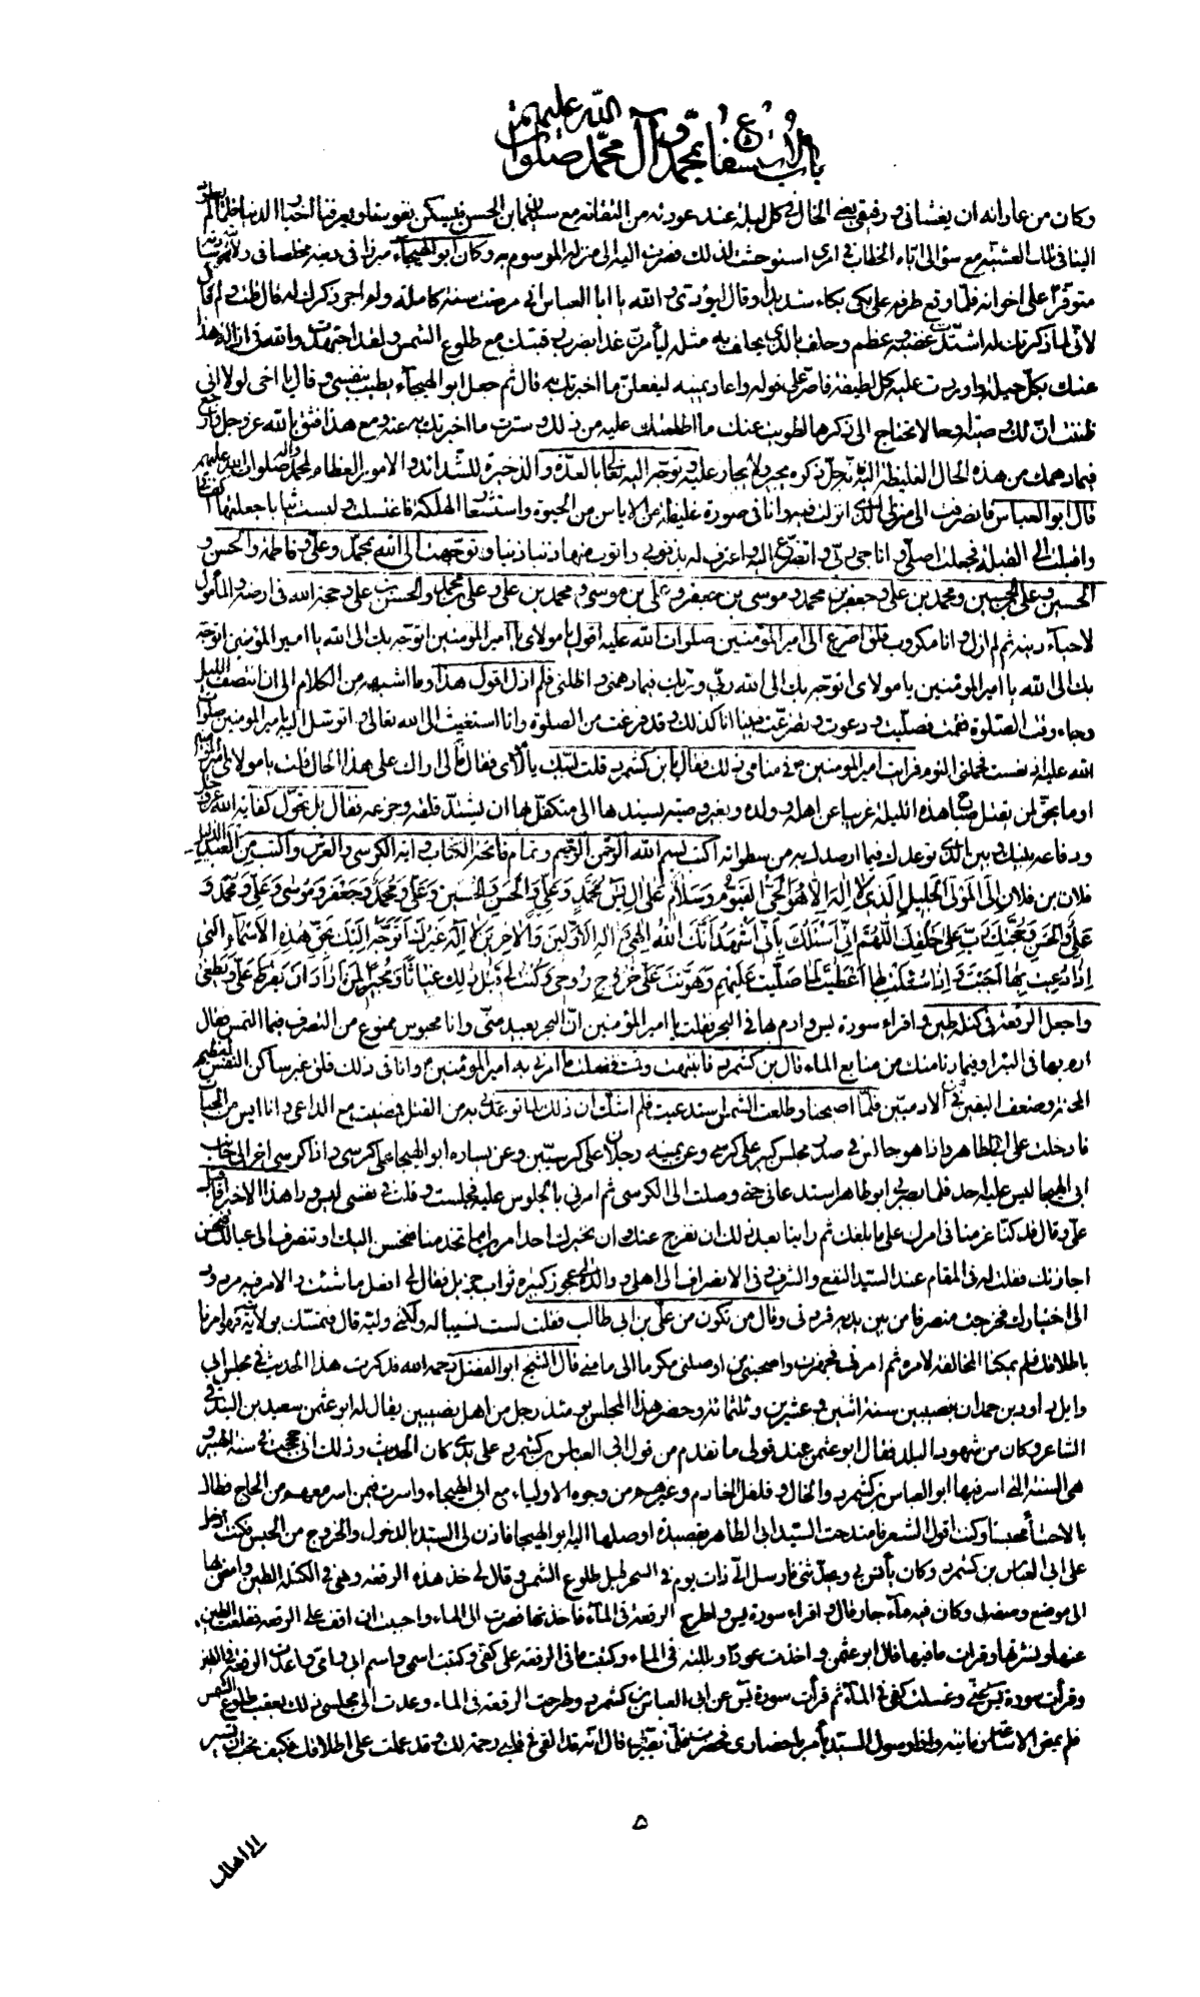 باب الاستشفاع بمحمد وآل محمد صلوات الله عليهم
وكان من عاداته ان يغشاني ورفيقي يعني الخال في كل ليلة عند عودته من التفاته مع سليمان بن الحسن فيسكن نفوسنا ويعرفنا اخبار الدنيا
الينا في تلك العشية مع سؤالي اتاه الخطاب في امري استوحشت لذلك فصرت اليه الى منزله الموسوم به وكان ابو الهيجاء مبرزا في دينه مخلصا في ولائه
متوفرا على اخوانه فلما وقع طرفه علي بكى بكاء شديدا وقال لوددت والله يا ابا العباس اني مرضت سنة كاملة ولم اجر ذكرك له قال قلت ولم قال
لاني لما ذكرتك له اشتد غضبه وعظم وحلف بالذي يحلف به مثله ليأمرن غدا بضرب رقبتك مع طلوع الشمس ولقد اجتهدت والله في ازالة هذا
عنك بكل حيلة واوردت عليه كل لطيفة فاصر على قوله واعاد يمينه ليفعلن ما اخبرتك به قال ثم جعل ابو الهيجاء يطيب نفسي وقال يا اخي لولا اني
ظننت ان لك وصية او حالا تحتاج الى ذكرها لطويت عنك ما اطلعتك عليه من ذلك وسترت ما اخبرتك به عنه ومع هذا فثق بالله عز وجل وارجع
فيما دهمك من هذه الحال الغليظة اليه جل ذكره يجير ولا يجار عليه وتوجه اليه تعالى بالعدة والذخيرة للشدائد والامور العظام لمحمد وآله صلوات الله عليهم
قال ابو العباس فانصرفت الى منزلي الذي انزلت فيه وانا في صورة غليظة من الاياس من الحيوة واستشعار الهلكة فاغتسلت ولبست ثيابا جعلتها كفني
واقبلت الى القبلة فجعلت اصلي واناجي ربي واتضرع اليه واعترف له بذنوبي واتوب منها ذنبا ذنبا وتوجهت الى الله بمحمد وعلي وفاطمة والحسن و
الحسين وعلي بن الحسين ومحمد بن علي وجعفر بن محمد وموسى بن جعفر وعلي بن موسى ومحمد بن علي وعلي بن محمد والحسن بن علي وحجة الله في ارضه المأمول
لاحياء دينه ثم لم ازل وانا مكروب قلق اضرع الى امير المؤمنين صلوات الله عليه اقول يا مولاي يا امير المؤمنين اتوجه بك الى الله يا امير المؤمنين اتوجه
بك الى الله يا امير المؤمنين يا مولاي اتوجه بك الى الله ربي وربك فيما دهمني واظلني فلم ازل اقول هذا وما اشبهه من الكلام الى ان انتصف الليل
وجاء وقت الصلوة فقمت فصليت ودعوت وتضرعت فبينا انا كذلك وقد فرغت من الصلوة وانا استغيث الى الله تعالى واتوسل اليه بامير المؤمنين صلوات
الله عليه اذ نعست فحملني النوم فرايت امير المؤمنين ع في منامي ذلك فقال يا بن كشمرد قلت لبيك يا مولاي فقال مالي اراك على هذا الحال فقلت يا مولاي
او ما يحق لمن يقتل صباح هذه الليلة غريبا عن اهله وولده وبغير وصية يسندها الى متكفل بها ان يشتد قلقه وجزعه فقال بل تحول كفاية الله عز وجل
ودفاعه بينك وبين الذي توعدك فيما ارصدك به من سطواته اكتب بسم الله الرحمن الرحيم وتمام فاتحة الكتاب واية الكرسي والعرش واكتب من العبد الذليل
فلان بن فلان الى المولى الجليل الذي لا اله الا هو الحي القيوم وسلام على ال يس محمد وعلي والحسن والحسين وعلي ومحمد وجعفر وموسى وعلي ومحمد و
علي والحسن وحجتك يا رب على خلقك اللهم اني اسئلك باني اشهد انك الله الهي واله الاولين والاخرين لا اله غيرك اتوجه اليك بحق هذه الاسماء التي
اذا دعيت بها اجبت واذا سئلت بها اعطيت لما صليت عليهم وهونت علي خروج روحي وكنت لي قبل ذلك غياثا ومجيرا لمن اراد ان يفرط علي ويطغى
واجعل الرقعة في كتلة طين واقراء سورة يس وارم بها في البحر فقلت يا امير المؤمنين ان البحر بعيد مني وانا محبوس ممنوع من التصرف فيما التمس فقال
ارم بها في البئر او فيما دنا منك من منابع الماء قال بن كشمرد فانتبهت وقمت ففعلت ما امرني به امير المؤمنين ع وانا في ذلك قلق غير ساكن النفس لعظيم
المحنة وضعف اليقين في الادميين فلما اصبحنا وطلعت الشمس استدعيت فلم اشك ان ذلك لما توعدني به من القتل فمضيت مع الداعي وانا ايس من الحياة
فادخلت على ابي الطاهر واذا هو جالس في صدر مجلس كبير على كرسي وعن يمينه رجلان على كرسيين وعن يساره ابو الهيجاء على كرسي واذا كرسي اخر الى جانب
ابي الهيجا ليس عليه احد فلما بصر بي ابو طاهر استدعاني حتى وصلت الى الكرسي ثم امرني بالجلوس عليه فجلست وقلت في نفسي ليس وراء هذا الا خير فاقبل
علي وقال قد كنا عزمنا في امرك على ما بلغك ثم راينا بعد ذلك ان نفرج عنك وان نخيرك احد امرين اما تخدمنا فنحسن اليك او تنصرف الى عيالك فنحسن
اجازتك فقلت له في المقام عند السيد النفع والشرف وفي الانصراف الى اهلي ووالدة لي عجوز كبيرة ثواب جزيل فقال لي افعل ما شئت والامر فيه مردود
الى اختيارك فخرجت منصرفا من بين يديه فردني وقال من تكون من علي بن ابي طالب فقلت لست نسيبا له ولكني وليه قال فتمسك بولايته فهو امرنا
باطلاقك فلم يمكنا المخالفة لامره ثم امر بي فجهزت واصحبني من اوصلني مكرما الى مامني قال الشيخ ابو المفضل رحمه الله فذكرت هذا الحديث في مجلس ابي
وايل داود بن حمدان بنصيبين سنة اثنين وعشرين وثلثمائة وحضر هذا المجلس يومئذ رجل من اهل نصيبين يقال له ابو عثمن سعيد بن البندقي
الشاعر وكان من شهود البلد فقال ابو عثمن عند قولي ما تقدم من قول ابي العباس بن كشمرد على يدي كان الحديث وذلك اني حججت في سنة الهبير و
هي السنة التي اسر فيها ابو العباس بن كشمرد والخال وفلفل الخادم وغيرهم من وجوه الاولياء مع ابي الهيجاء واسرت فيمن اسر معهم من الحاج فطال
بالاحساء محبسنا وكنت اقول الشعر فامتدحت السيد ابي الطاهر بقصيدة اوصلها اليه ابو الهيجا فاذن لي السيد بالدخول والخروج من الحبس فكنت ادخل
على ابي العباس بن كشمرد وكان يأنس بي ويحدثني فارسل الي ذات يوم في السحر قبل طلوع الشمس وقال لي خذ هذه الرقعة وهي في الكتلة الطين وامض بها
الى موضع وصفه لي وكان فيه ماء جار قال واقراء سورة يس واطرح الرقعة في الماء فاخذتها فصرت الى الماء واحببت ان اقف على الرقعة فقلعت الطين
عنها ونشرتها وقرات ما فيها قال ابو عثمن واخذت عودا وبللته في الماء وكتبت ما في الرقعة على كفي وكتبت اسمي واسم ابي وامي واعدت الرقعة في الطين
وقرأت سورة يس عني وغسلت كفي في الماء ثم قرأت سورة يس عن ابي العباس بن كشمرد وطرحت الرقعة في الماء وعدت الى مجلسي ذلك بعقب طلوع الشمس
فلم يمض الا ساعة واذا رسول السيد يأمر باحضاري فحضرت فلما بصر بي قال انه قد القي في قلبي رحمة لك وقد عملت على اطلاقك فكيف تحب ان تسير
٥
الى اهلك